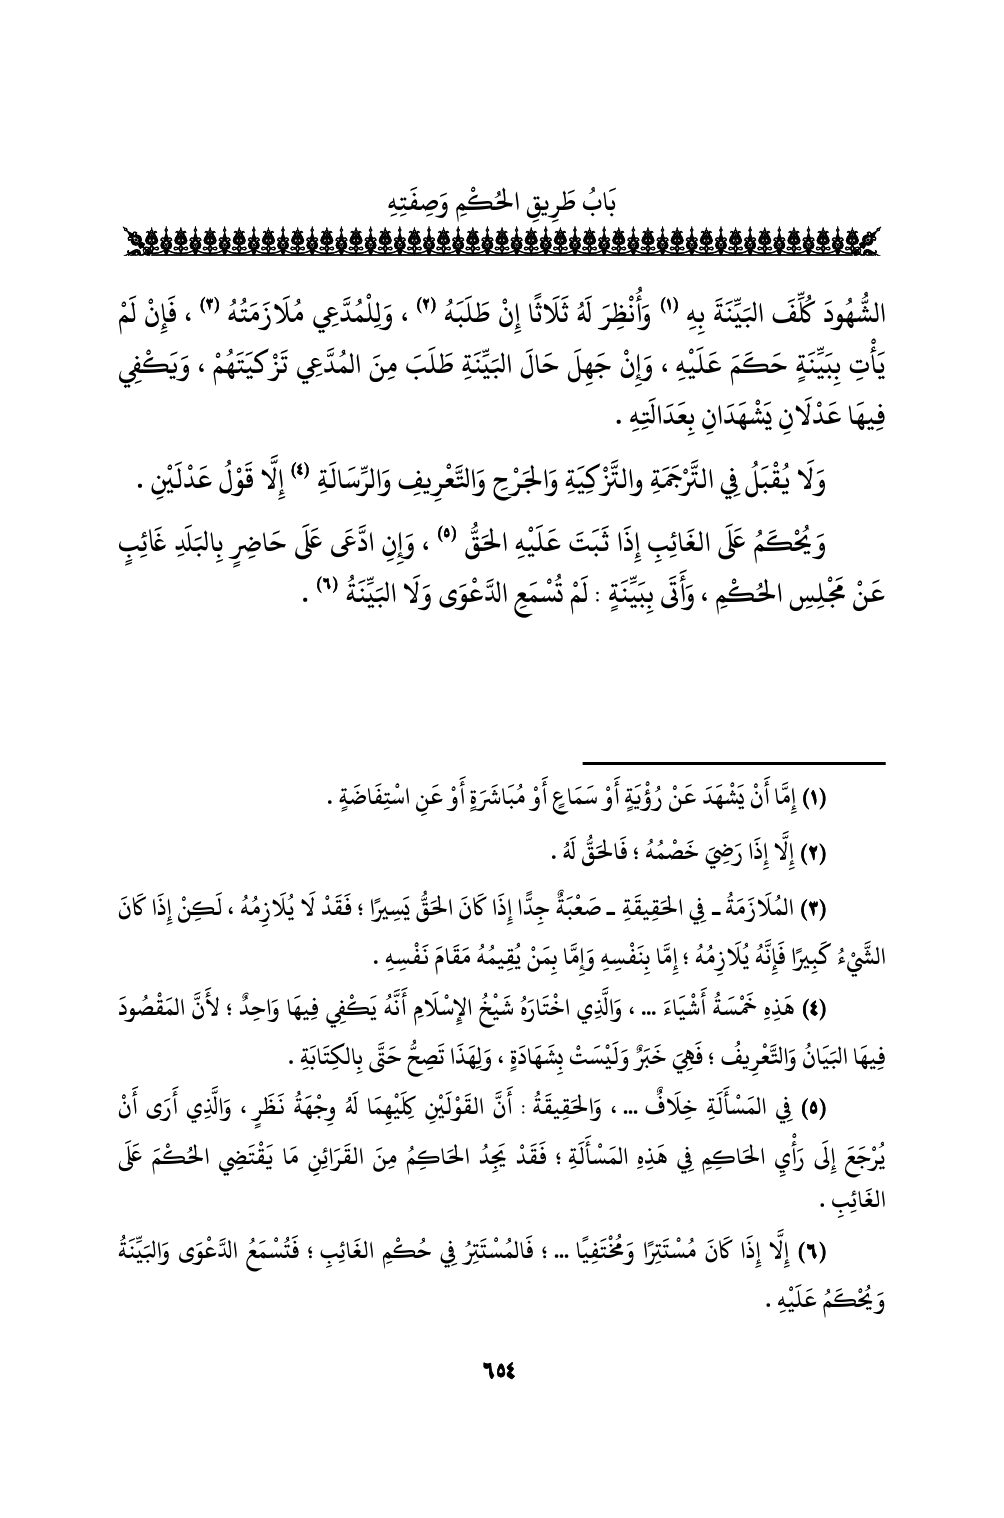 بَابُ طَرِيقِ الحُكْمِ وَصِفَتِهِ
الشُّهُودَ كُلِّفَ البَيِّنَةَ بِهِ (١) وَأُنْظِرَ لَهُ ثَلَاثًا إِنْ طَلَبَهُ (٢) ، وَلِلْمُدَّعِي مُلَازَمَتُهُ (٣) ، فَإِنْ لَمْ
يَأْتِ بِبَيِّنَةٍ حَكَمَ عَلَيْهِ ، وَإِنْ جَهِلَ حَالَ البَيِّنَةِ طَلَبَ مِنَ المُدَّعِي تَزْكِيَتَهُمْ ، وَيَكْفِي
فِيهَا عَدْلَانِ يَشْهَدَانِ بِعَدَالَتِهِ .
وَلَا يُقْبَلُ فِي التَّرْجَمَةِ والتَّزْكِيَةِ وَالجَرْحِ وَالتَّعْرِيفِ وَالرِّسَالَةِ (٤) إِلَّا قَوْلُ عَدْلَيْنِ .
وَيُحْكَمُ عَلَى الغَائِبِ إِذَا ثَبَتَ عَلَيْهِ الحَقُّ (٥) ، وَإِنِ ادَّعَى عَلَى حَاضِرٍ بِالبَلَدِ غَائِبٍ
عَنْ مَجْلِسِ الحُكْمِ ، وَأَتَى بِبَيِّنَةٍ : لَمْ تُسْمَعِ الدَّعْوَى وَلَا البَيِّنَةُ (٦) .
(١) إِمَّا أَنْ يَشْهَدَ عَنْ رُؤْيَةٍ أَوْ سَمَاعٍ أَوْ مُبَاشَرَةٍ أَوْ عَنِ اسْتِفَاضَةٍ .
(٢) إِلَّا إِذَا رَضِيَ خَصْمُهُ ؛ فَالحَقُّ لَهُ .
(٣) المُلَازَمَةُ ـ فِي الحَقِيقَةِ ـ صَعْبَةٌ جِدًّا إِذَا كَانَ الحَقُّ يَسِيرًا ؛ فَقَدْ لَا يُلَازِمُهُ ، لَكِنْ إِذَا كَانَ
الشَّيْءُ كَبِيرًا فَإِنَّهُ يُلَازِمُهُ ؛ إِمَّا بِنَفْسِهِ وَإِمَّا بِمَنْ يُقِيمُهُ مَقَامَ نَفْسِهِ .
(٤) هَذِهِ خَمْسَةُ أَشْيَاءَ ... ، وَالَّذِي اخْتَارَهُ شَيْخُ الإِسْلَامِ أَنَّهُ يَكْفِي فِيهَا وَاحِدٌ ؛ لأَنَّ المَقْصُودَ
فِيهَا البَيَانُ وَالتَّعْرِيفُ ؛ فَهِيَ خَبَرٌ وَلَيْسَتْ بِشَهَادَةٍ ، وَلِهَذَا تَصِحُّ حَتَّى بِالكِتَابَةِ .
(٥) فِي المَسْأَلَةِ خِلَافٌ ... ، وَالحَقِيقَةُ : أَنَّ القَوْلَيْنِ كِلَيْهِمَا لَهُ وِجْهَةُ نَظَرٍ ، وَالَّذِي أَرَى أَنْ
يُرْجَعَ إِلَى رَأْيِ الحَاكِمِ فِي هَذِهِ المَسْأَلَةِ ؛ فَقَدْ يَجِدُ الحَاكِمُ مِنَ القَرَائِنِ مَا يَقْتَضِي الحُكْمَ عَلَى
الغَائِبِ .
(٦) إِلَّا إِذَا كَانَ مُسْتَتِرًا وَمُخْتَفِيًا ... ؛ فَالمُسْتَتِرُ فِي حُكْمِ الغَائِبِ ؛ فَتُسْمَعُ الدَّعْوَى وَالبَيِّنَةُ
وَيُحْكَمُ عَلَيْهِ .
٦٥٤